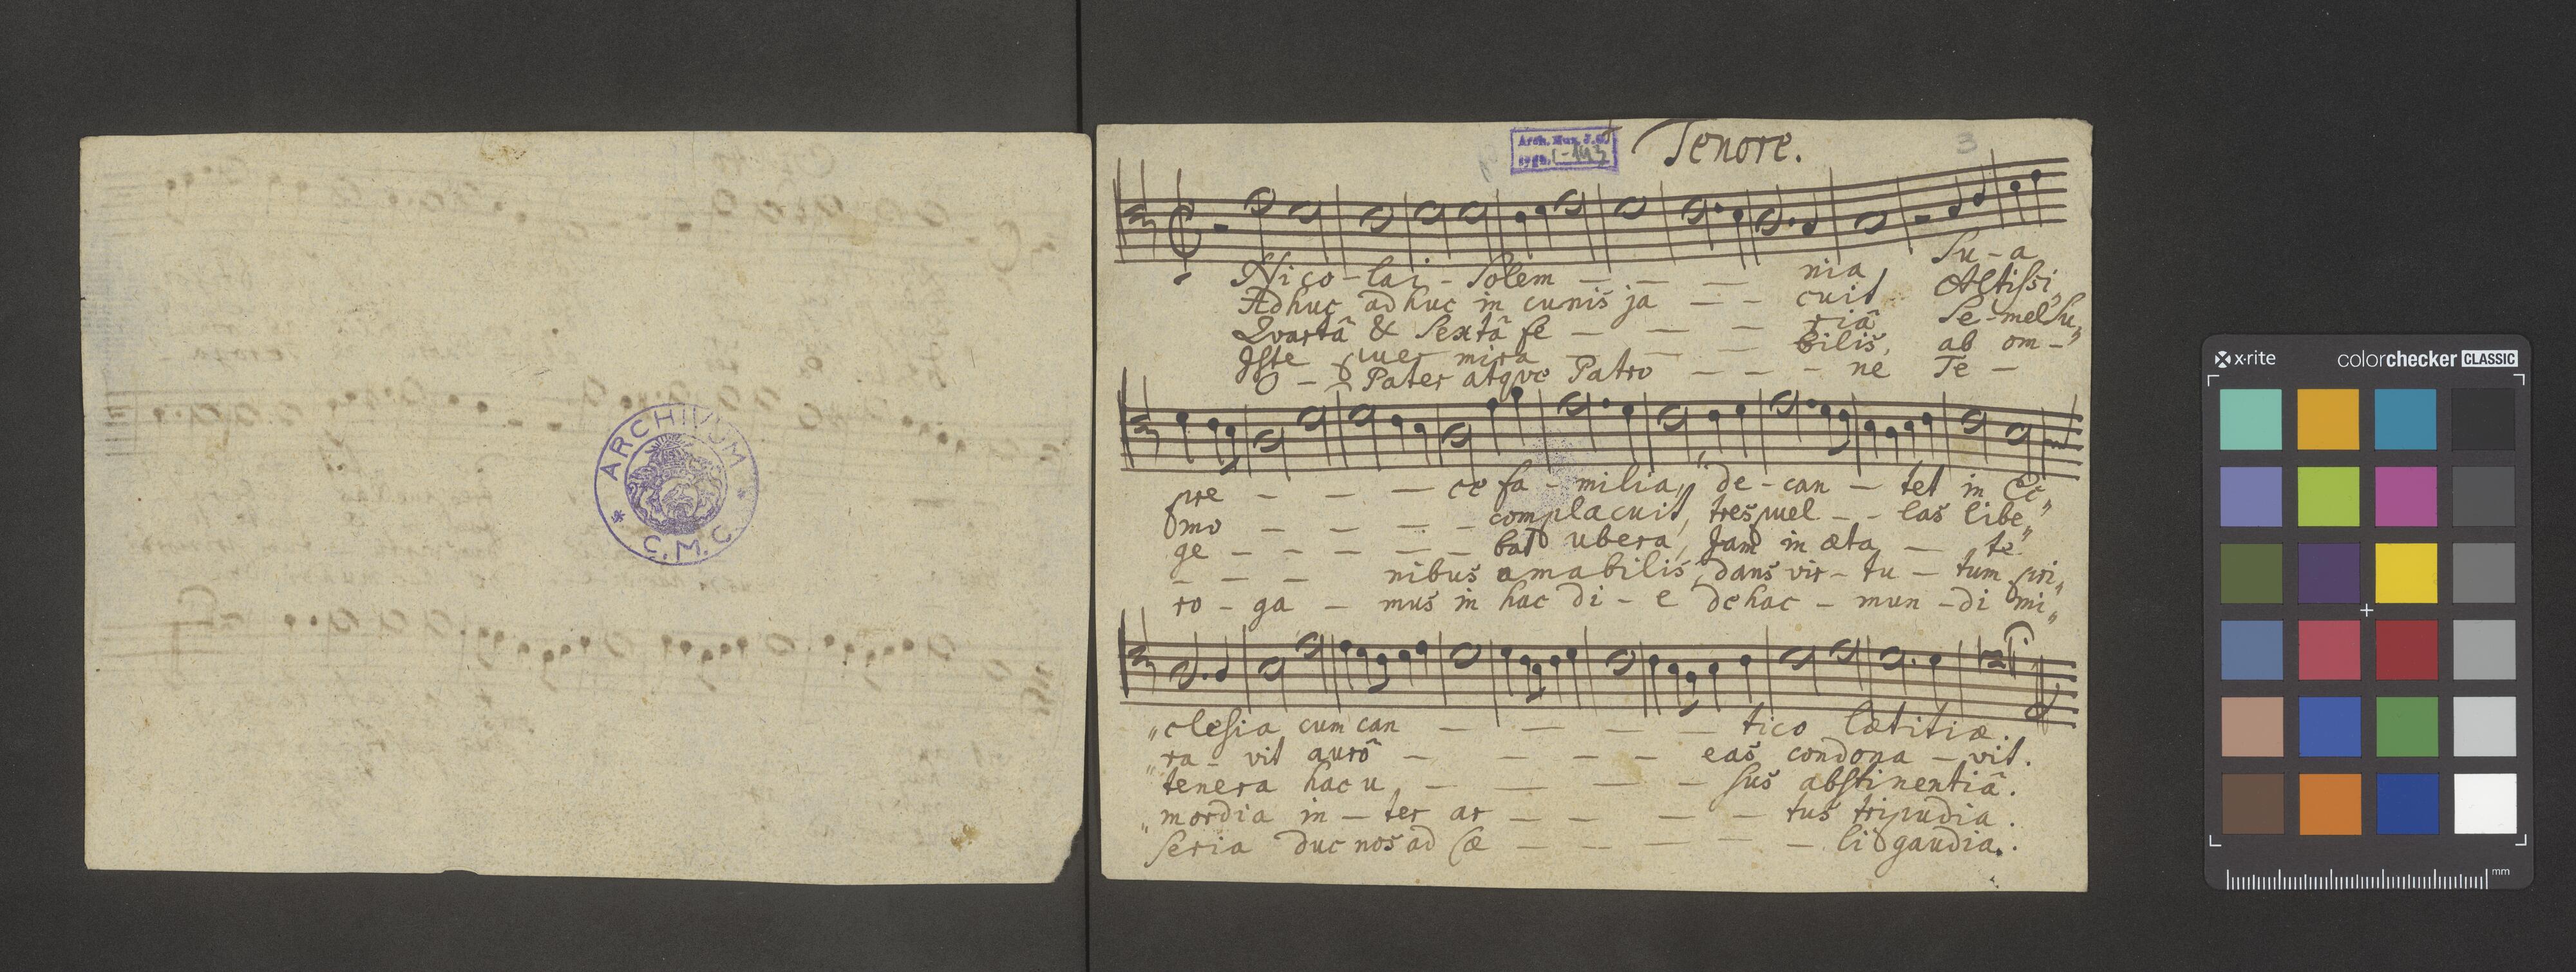 ARCHIVUM
C.M.C.
Arch. Muz. J.G.
sygn. I-143
Tenore.
3
Nico-lai-Solem - - - nia, Su-a
Adhuc adhuc in cuniš ja - - cuit Altiſsi„
Qvartâ & Sextâ fe - - - riâ Se-mel Su„
Iſte puer mira - - - biliš, ab om-„
O - Pater atqve Patro - - - ne Te -
pre - - - ce fa-milia, de-can - tet in Ec„
mo - - - - complacuit, treš puel - - laš libe„
ge - - - - - bat ubera, Jam in æta - te„
- - - nibuš amabiliš, danš vir-tu-tum pri„
ro-ga - muš in hac di-e de hac - mun-di mi„
„cleſia cum can - - - - tico lætitiæ.
„ra-vit aurô - - - - - eaš condona-vit.
tenera hac u - - - - suš abſtinentiâ.
„mordia in-ter ar - - - - - tuš tripudia.
Seria duc noš ad Cæ - - - - - li gaudia.
x-rite
colorchecker CLASSIC
mm